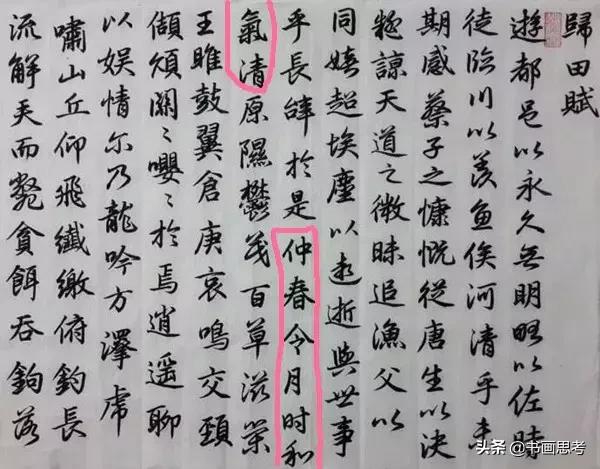 歸田賦
遊都邑以永久無明略以佐時
徒臨川以羨魚俟河清乎未
期感蔡子之慷慨從唐生以決
疑諒天道之微昧追漁父以
同嬉超埃塵以遐逝與世事
乎長辭於是仲春令月时和
氣清原隰鬱茂百草滋榮
王雎鼓翼倉庚哀鳴交頸
頡頏關〻嚶〻於焉逍遥聊
以娛情尔乃龍吟方澤虎
嘯山丘仰飛纖繳俯釣長
流而斃貪餌吞鉤落
头条 @书画思考